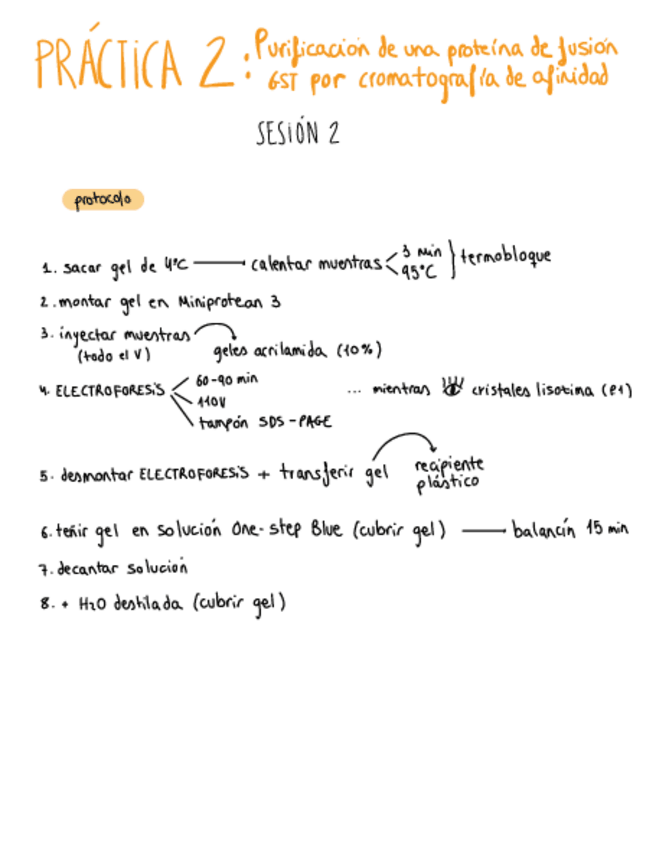 PRÁCTICA 2: Purificación de una proteína de fusión
GST por cromatografía de afinidad
SESIÓN 2
protocolo
1. sacar gel de 4ºC calentar muentras 3 min termobloque
95ºC
2. montar gel en Miniprotean 3
3. inyectar muestras
(todo el V) geles acrilamida (10%)
4. ELECTROFORESIS 60-90 min ... mientras cristales lisozima (P1)
110V
tampón SDS-PAGE
5. desmontar ELECTROFORESIS + transferir gel recipiente
plástico
6. teñir gel en solución One-step Blue (cubrir gel) balancín 15 min
7. decantar solución
8. + H2O destilada (cubrir gel)